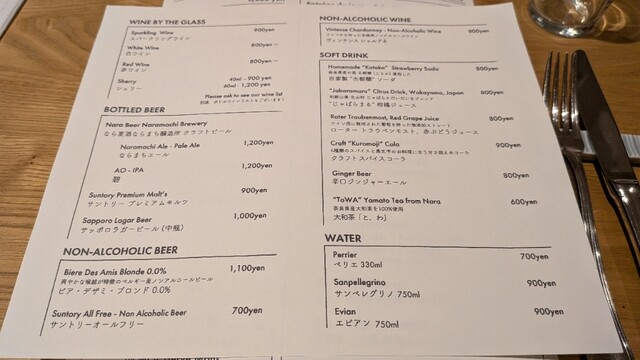 WINE BY THE GLASS
Sparkling Wine 900yen
スパークリングワイン
White Wine 800yen ~
白ワイン
Red Wine 800yen ~
赤ワイン
Sherry 40ml - 900 yen
シェリー 60ml - 1,200 yen
Please ask to see our wine list
BOTTLED BEER
Nara Beer Naramachi Brewery
なら麦酒ならまち醸造所 クラフトビール
Naramachi Ale - Pale Ale 1,200yen
ならまちエール
AO - IPA 1,200yen
Suntory Premium Malt's 900yen
サントリー プレミアムモルツ
Sapporo Lagar Beer 1,000yen
サッポロラガービール (中瓶)
NON-ALCOHOLIC BEER
Biere Des Amis Blonde 0.0% 1,100yen
爽やかな喉越が特徴のベルギー産ノンアルコールビール
ビア・デザミ・ブロンド 0.0%
Suntory All Free - Non Alcoholic Beer 700yen
サントリーオールフリー
NON-ALCOHOLIC WINE
Vintense Chardonnay - Non-Alcoholic Wine 800yen
ヴィンテンス シャルドネ
SOFT DRINK
Homemade "Kotoka" Strawberry Soda 800yen
自家製 "古都華" ソーダ
"Jabaramura" Citrus Drink, Wakayama, Japan 800yen
"じゃばらまる" 柑橘ジュース
Roter Traubenmost, Red Grape Juice 800yen
ローター トラウベンモスト、赤ぶどうジュース
Craft "Kuromoji" Cola 900yen
クラフトスパイスコーラ
Ginger Beer 800yen
辛口ジンジャーエール
"ToWA" Yamato Tea from Nara 600yen
奈良県産大和茶を100%使用
大和茶「と、わ」
WATER
Perrier 700yen
ペリエ 330ml
Sanpellegrino 900yen
サンペレグリノ 750ml
Evian 900yen
エビアン 750ml